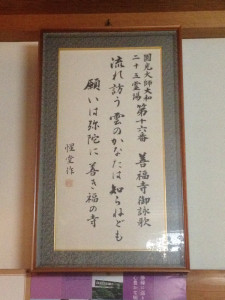 圓光大師大和
二十五霊場 第十六番 善福寺御詠歌
流れ訪う雲のかなたは知らねども
願いは弥陀に善き福の寺